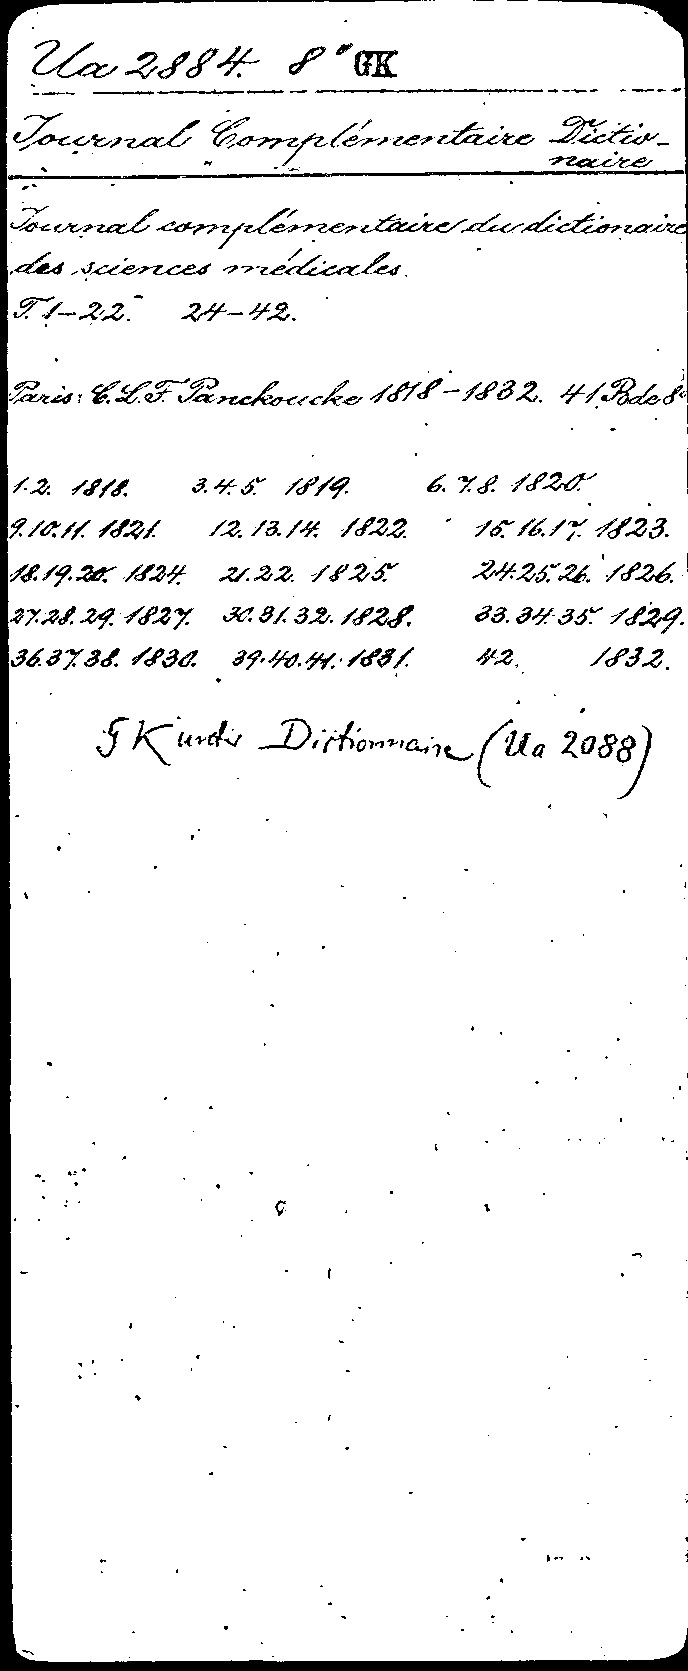 Ua 2884. 8° GK
Journal Complémentaire Dictio-
naire
Journal complémentaire du dictionaire
des sciences médicales.
T. 1-22. 24-42.
Paris: C. L. F. Panckoucke 1818-1832. 41 Bde 8°
1.2. 1818. 3.4.5. 1819. 6.7.8. 1820.
9.10.11. 1821. 12.13.14. 1822. 15.16.17. 1823.
18.19.20. 1824. 21.22. 1825. 24.25.26. 1826.
27.28.29. 1827. 30.31.32. 1828. 33.34.35. 1829.
36.37.38. 1830. 39.40.41. 1831. 42. 1832.
GK unter Dictionnaire (Ua 2088)